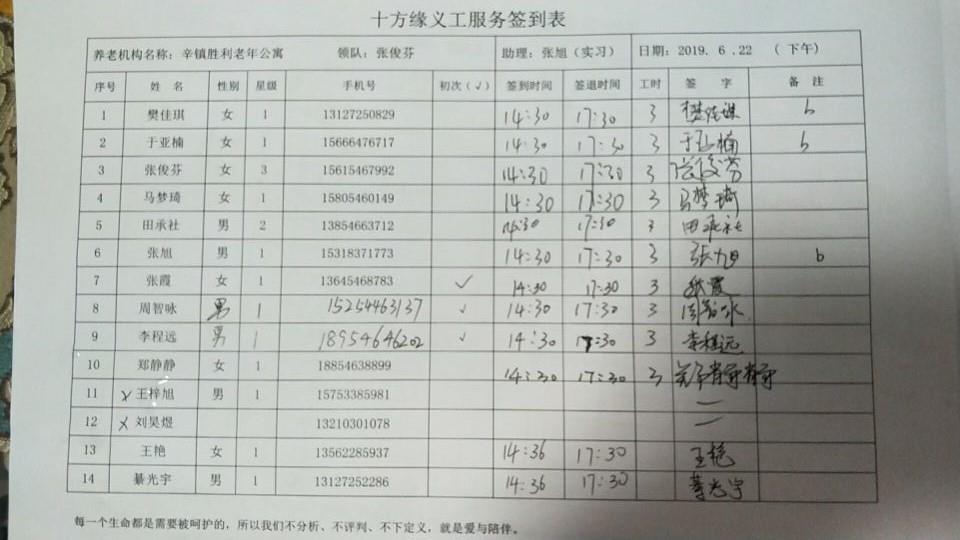 十方缘义工服务签到表
养老机构名称：辛镇胜利老年公寓 领队：张俊芬 助理：张旭（实习） 日期：2019. 6 .22 （下午）
序号 姓 名 性别 星级 手机号 初次（√） 签到时间 签退时间 工时 签 字 备 注
1 樊佳琪 女 1 13127250829 14:30 17:30 3 樊佳琪 b
2 于亚楠 女 1 15666476717 14:30 17:30 3 于亚楠 b
3 张俊芬 女 3 15615467992 14:30 17:30 3 张俊芬
4 马梦琦 女 1 15805460149 14:30 17:30 3 马梦琦
5 田承社 男 2 13854663712 14:30 17:30 3 田承社
6 张旭 男 1 15318371773 14:30 17:30 3 张旭 b
7 张霞 女 1 13645468783 √ 14:30 17:30 3 张霞
8 周智咏 男 1 15254463137 √ 14:30 17:30 3 周智咏
9 李程远 男 1 18954646202 √ 14:30 17:30 3 李程远
10 郑静静 女 1 18854638899 14:30 17:30 3 郑静静
11 x 王梓旭 男 1 15753385981 —
12 x 刘昊煜 13210301078 —
13 王艳 女 1 13562285937 14:36 17:30 王艳
14 綦光宇 男 1 13127252286 14:36 17:30 綦光宇
每一个生命都是需要被呵护的，所以我们不分析、不评判、不下定义，就是爱与陪伴。